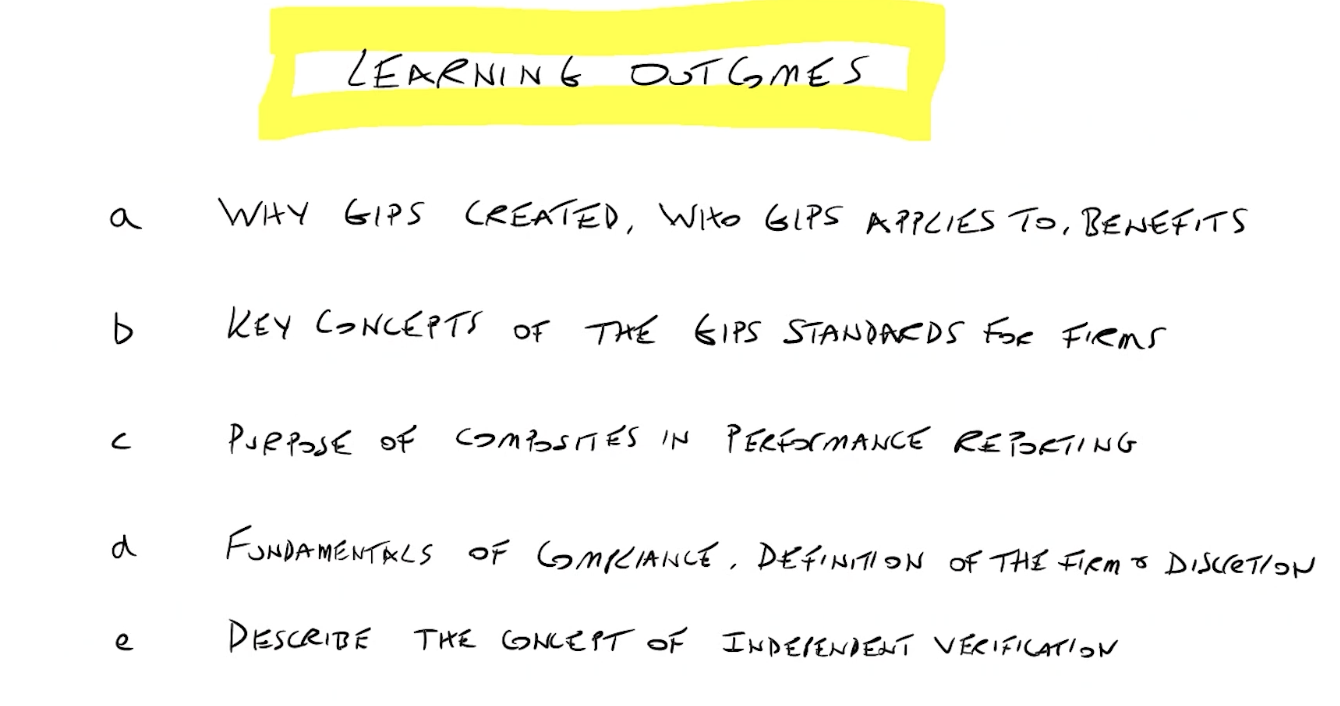 LEARNING OUTCOMES
a WHY GIPS CREATED, WHO GIPS APPLIES TO, BENEFITS
b KEY CONCEPTS OF THE GIPS STANDARDS FOR FIRMS
c PURPOSE OF COMPOSITES IN PERFORMANCE REPORTING
d FUNDAMENTALS OF COMPLIANCE, DEFINITION OF THE FIRM & DISCRETION
e DESCRIBE THE CONCEPT OF INDEPENDENT VERIFICATION